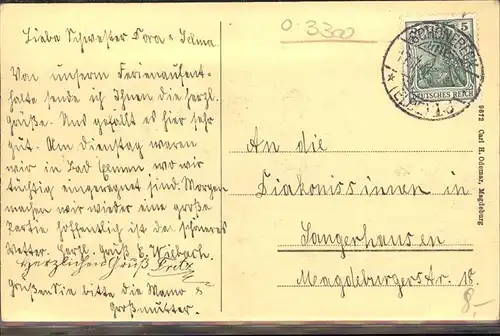 0.3300
Liebe Schwester Dora u. Selma
Von unserm Ferienaufent-
halte sende ich Ihnen die herzl.
Grüße. Uns gefällt es hier sehr
gut. Am Dienstag waren
wir in Bad Elmen wo wir
tüchtig eingeregnet sind. Morgen
machen wir wieder eine große
Partie hoffentlich ist da schönes
Wetter. Herzl. Gruß E. Wilbach.
Herzlichen Gruß Fritz
Grüßen Sie bitte die Mama u
Großmutter.
5
DEUTSCHES REICH
An die
Diakonissinnen in
Sangerhausen
Magdeburgerstr. 18.
8,-
9672 Carl H. Odemar, Magdeburg